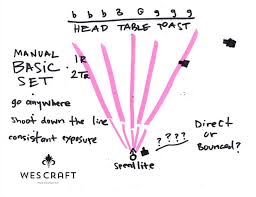 b b b B G g g g
HEAD TABLE TOAST
MANUAL
BASIC
SET
1R
2TR
go anywhere
shoot down the line
consistent exposure
? ? ? ?
Direct
or
Bounced?
Speedlite
WES CRAFT